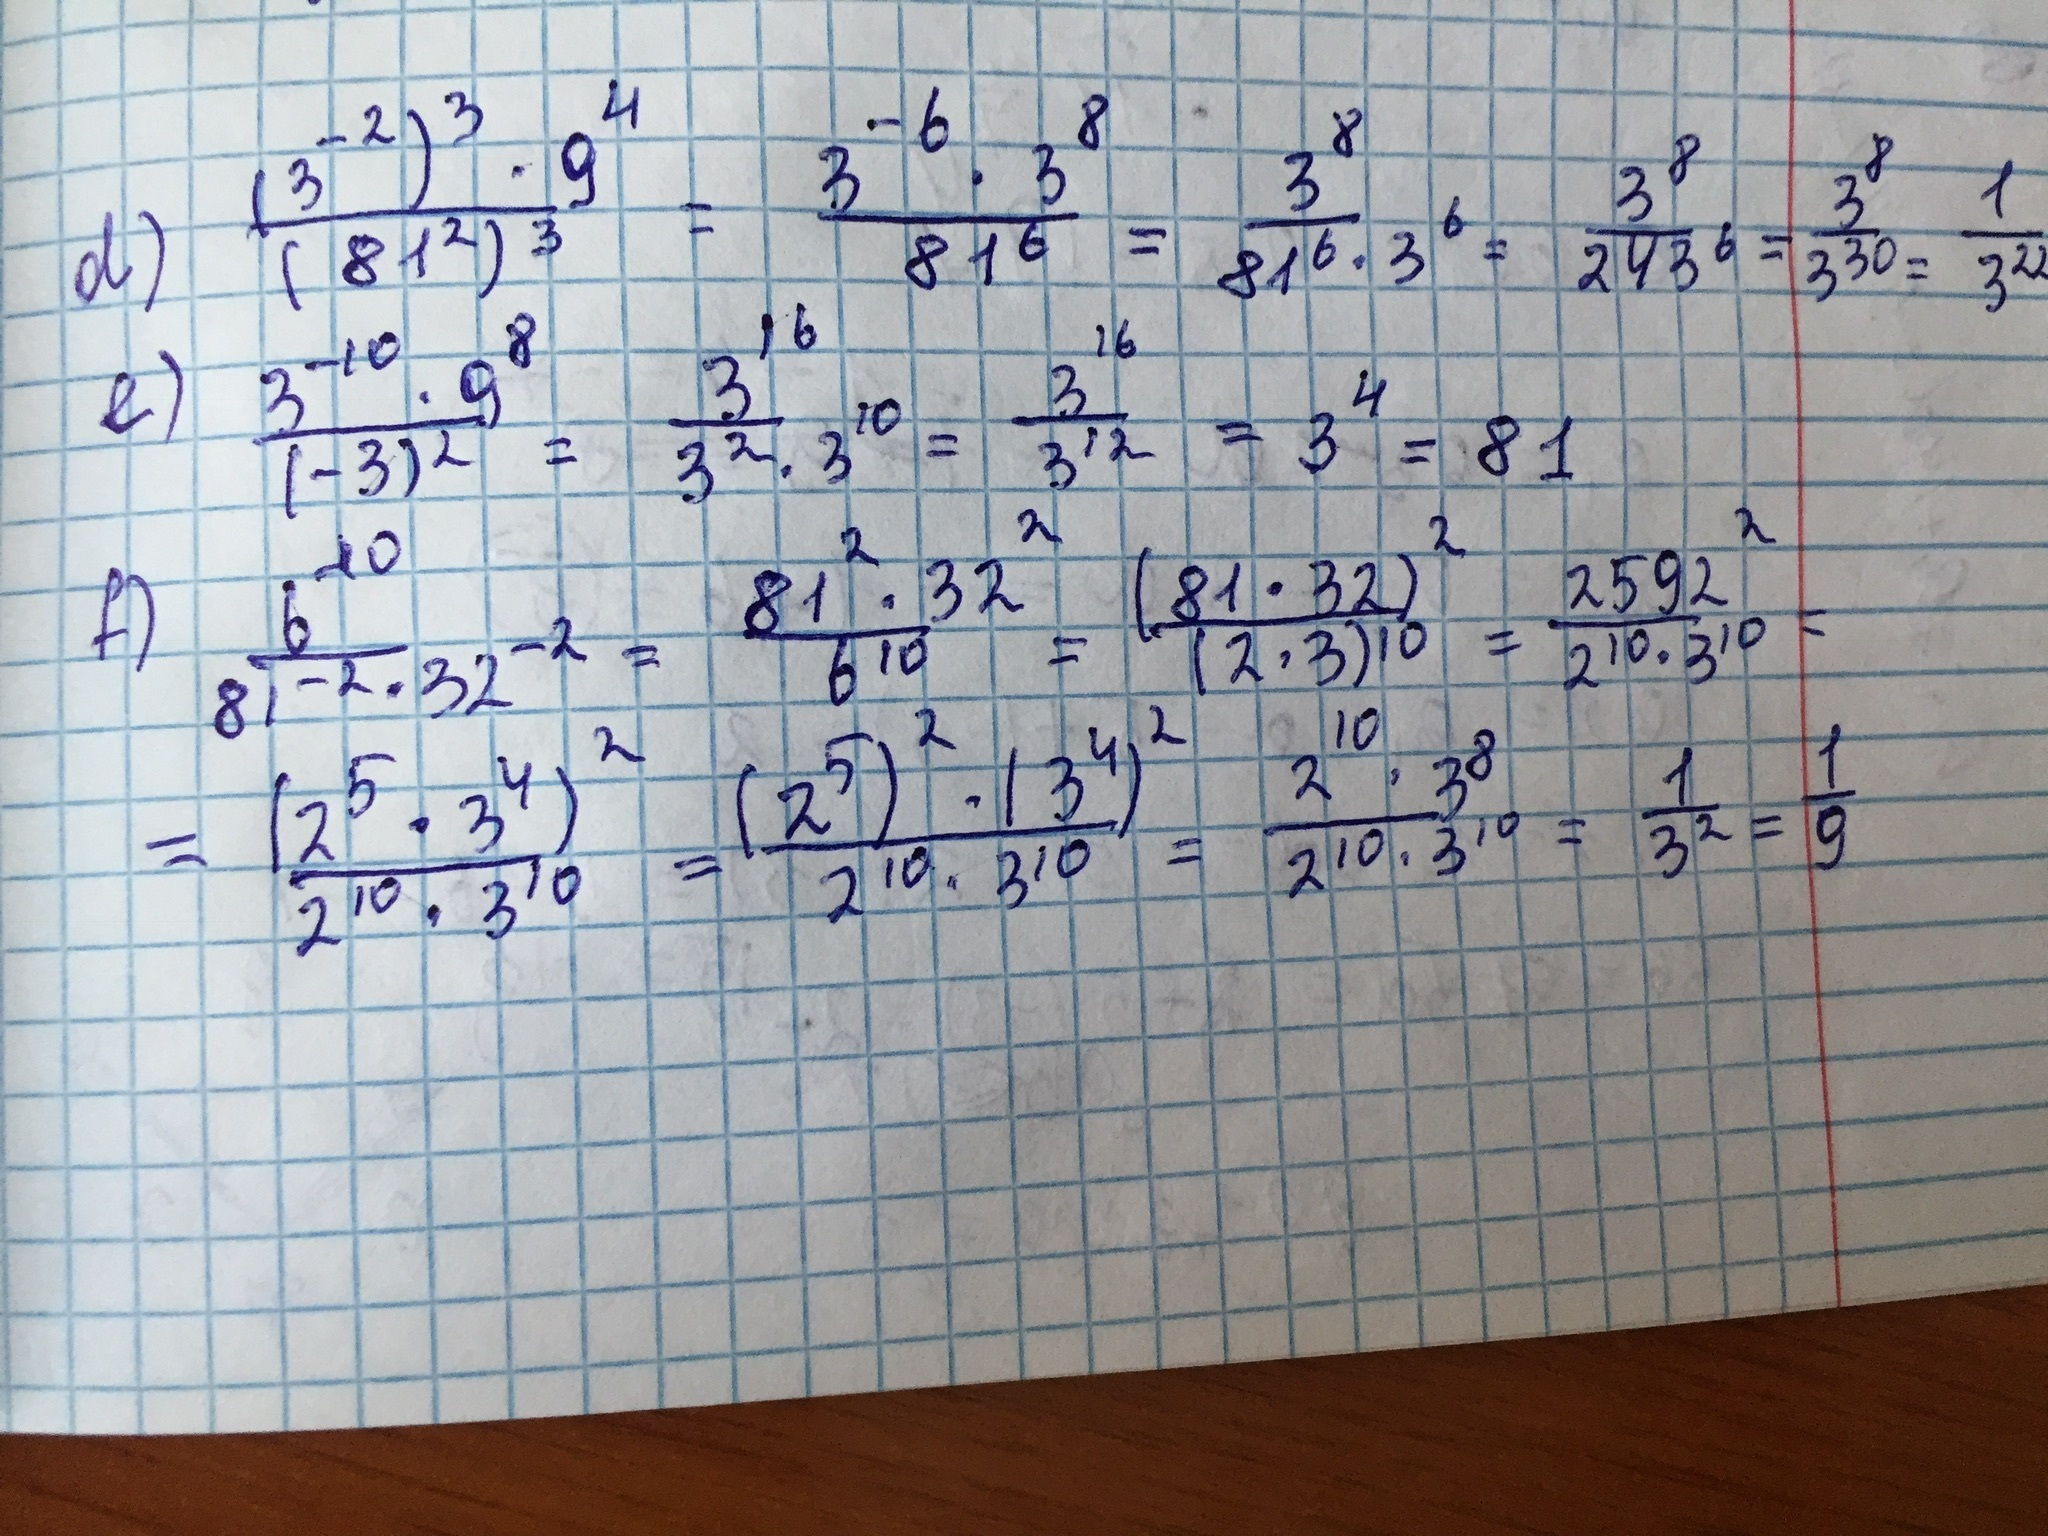 d) \frac{(3^{-2})^3 \cdot 9^4}{(81^2)^3} = \frac{3^{-6} \cdot 3^8}{81^6} = \frac{3^8}{81^6 \cdot 3^6} = \frac{3^8}{243^6} = \frac{3^8}{3^{30}} = \frac{1}{3^{22}}
e) \frac{3^{-10} \cdot 9^8}{(-3)^2} = \frac{3^{16}}{3^2 \cdot 3^{10}} = \frac{3^{16}}{3^{12}} = 3^4 = 81
f) \frac{6^{-10}}{81^{-2} \cdot 32^{-2}} = \frac{81^2 \cdot 32^2}{6^{10}} = \frac{(81 \cdot 32)^2}{(2 \cdot 3)^{10}} = \frac{2592^2}{2^{10} \cdot 3^{10}} =
= \frac{(2^5 \cdot 3^4)^2}{2^{10} \cdot 3^{10}} = \frac{(2^5)^2 \cdot (3^4)^2}{2^{10} \cdot 3^{10}} = \frac{2^{10} \cdot 3^8}{2^{10} \cdot 3^{10}} = \frac{1}{3^2} = \frac{1}{9}